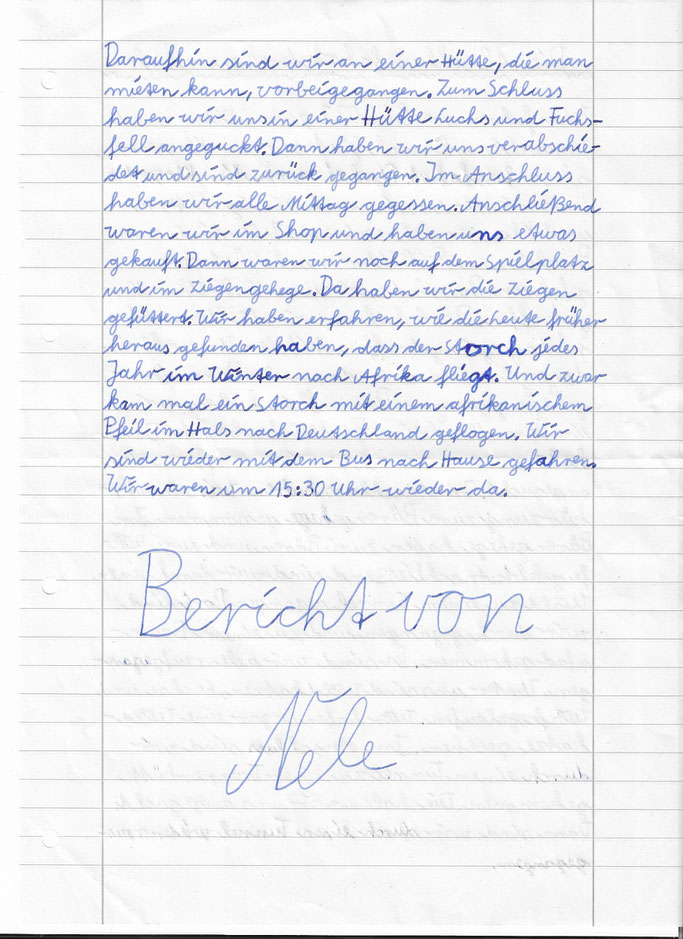 Daraufhin sind wir an einer Hütte, die man
mieten kann, vorbeigegangen. Zum Schluss
haben wir uns in einer Hütte Luchs und Fuchs-
fell angeguckt. Dann haben wir uns verabschie-
det und sind zurück gegangen. Im Anschluss
haben wir alle Mittag gegessen. Anschließend
waren wir im Shop und haben uns etwas
gekauft. Dann waren wir noch auf dem Spielplatz
und im Ziegengehege. Da haben wir die Ziegen
gefüttert. Wir haben erfahren, wie die Leute früher
heraus gefunden haben, dass der Storch jedes
Jahr im Winter nach Afrika fliegt. Und zwar
kam mal ein Storch mit einem afrikanischem
Pfeil im Hals nach Deutschland geflogen. Wir
sind wieder mit dem Bus nach Hause gefahren.
Wir waren um 15:30 Uhr wieder da.
Bericht von
Nele